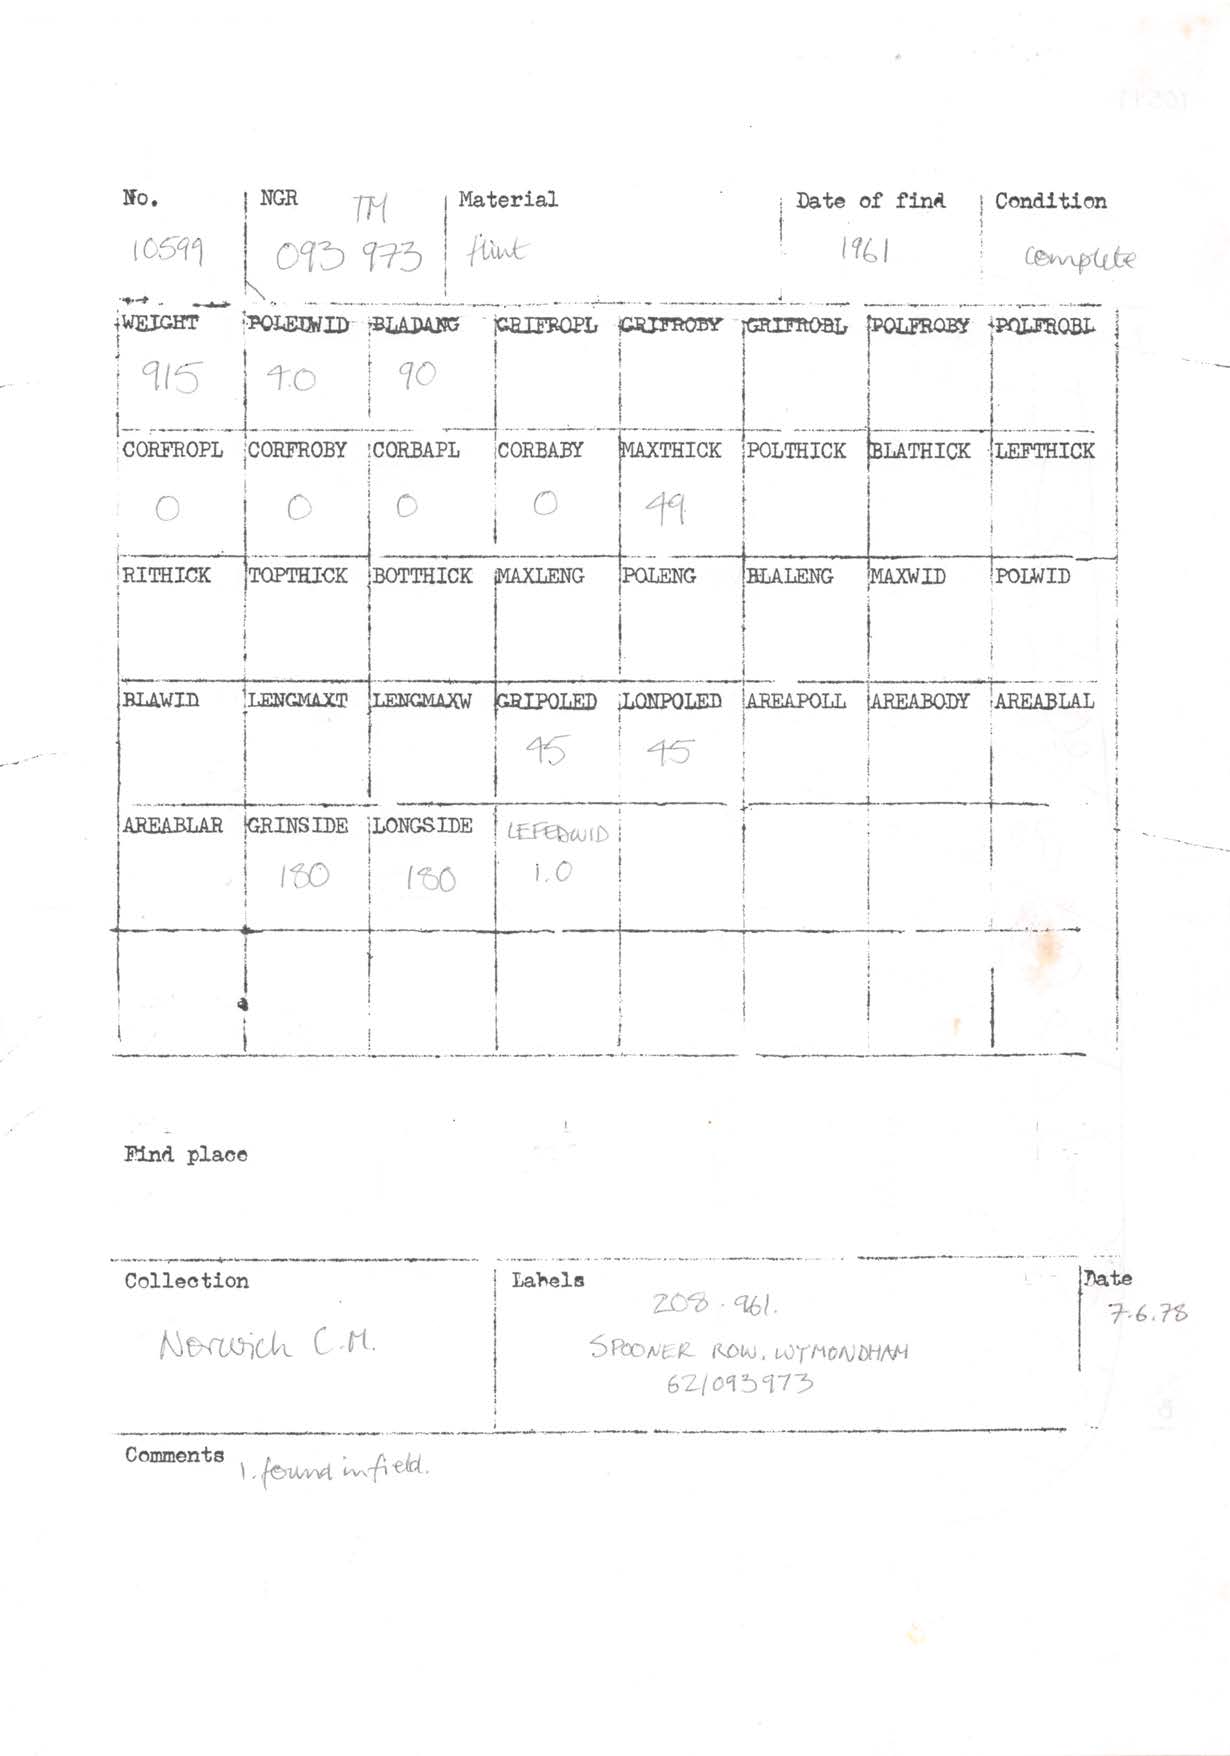 No. NGR TM Material Date of find Condition
10599 093 973 flint 1961 complete
WEIGHT POLEDWID BLADANG GRIFROPL GRIFROBY GRIFROBL POLFROBY POLFROBL
915 4.0 90
CORFROPL CORFROBY CORBAPL CORBABY MAXTHICK POLTHICK BLATHICK LEFTHICK
0 0 0 0 49
RITHICK TOPTHICK BOTTHICK MAXLENG POLENG BLALENG MAXWID POLWID
BLAWID LENGMAXT LENGMAXW GRIPOLED LONPOLED AREAPOLL AREABODY AREABLAL
45 45
AREABLAR GRINSIDE LONGSIDE LEFEDWID
180 180 1.0
Find place
Collection Labels Date
208.961. 7.6.78
Norwich C.M. SPOONER ROW, WYMONDHAM
62/093973
Comments 1. found in field.